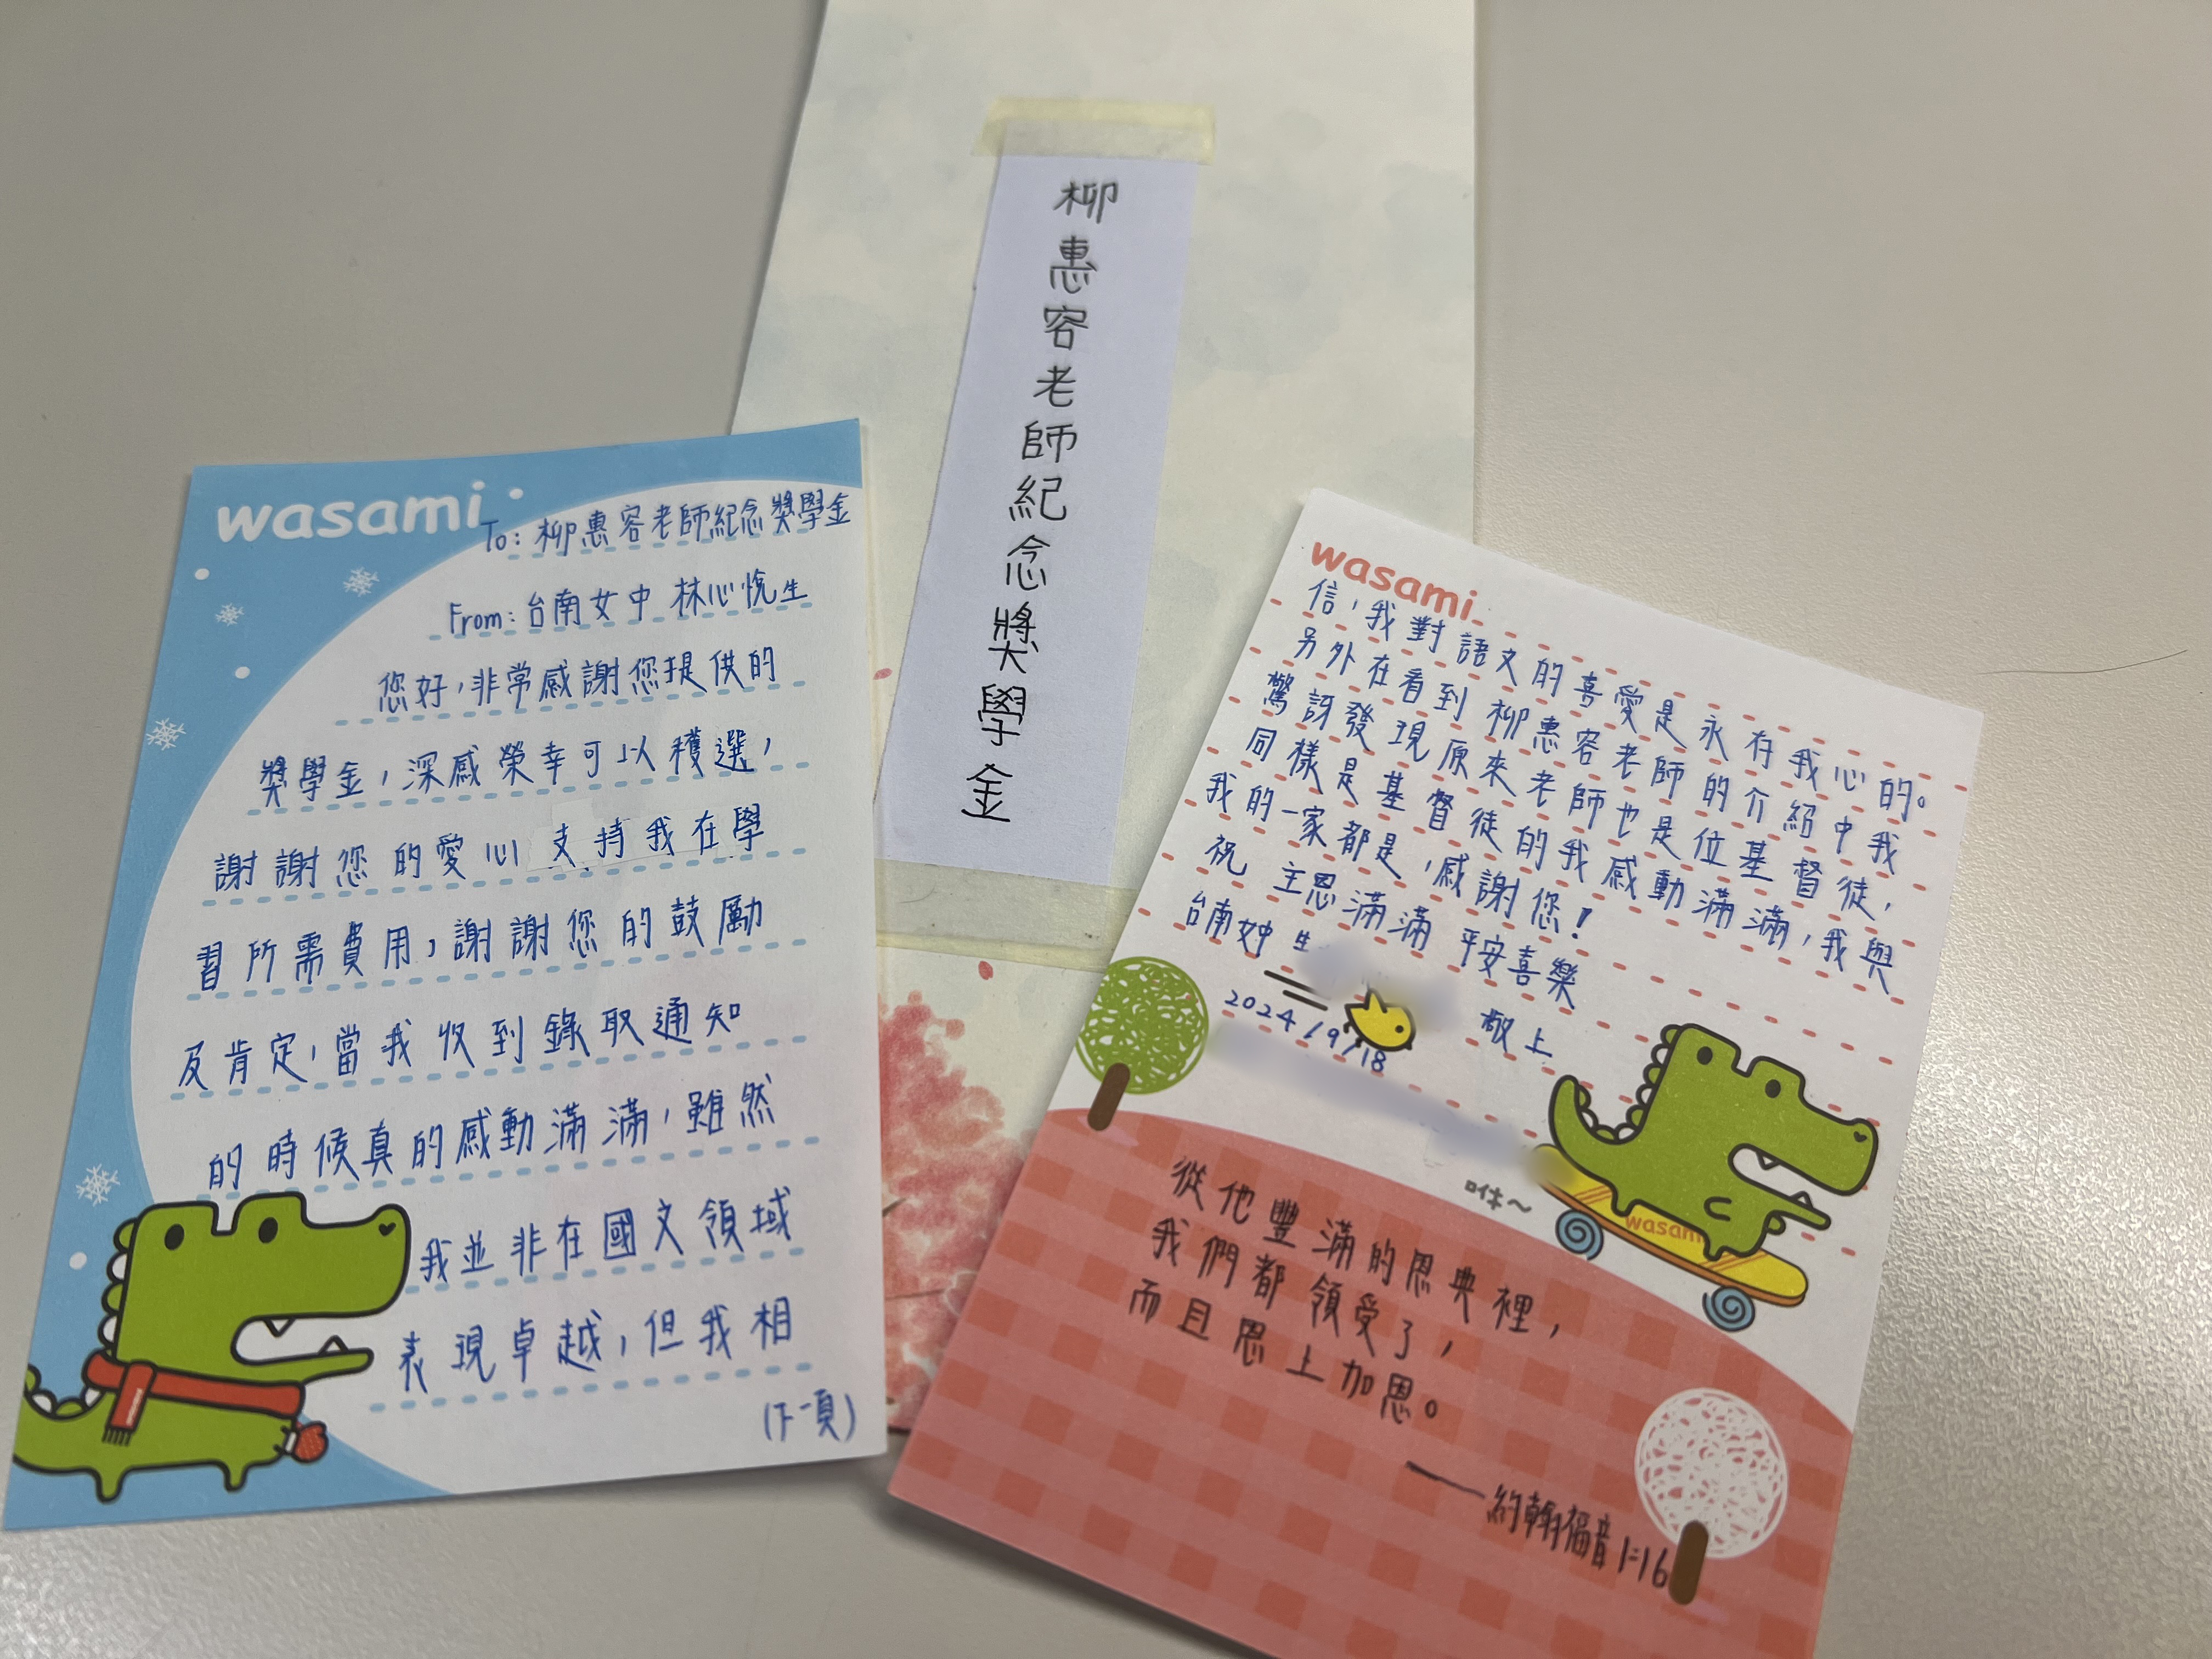 柳惠容老師紀念獎學金
wasami
To: 柳惠容老師紀念獎學金
From: 台南女中 林心悅生
您好，非常感謝您提供的
獎學金，深感榮幸可以穫選，
謝謝您的愛心支持我在學
習所需費用，謝謝您的鼓勵
及肯定，當我收到錄取通知
的時候真的感動滿滿，雖然
我並非在國文領域
表現卓越，但我相
(下一頁)
wasami
信，我對語文的喜愛是永存我心的。
另外在看到柳惠容老師的介紹中我
驚訝發現原來老師也是位基督徒，
同樣是基督徒的我感動滿滿，我與
我的一家都是，感謝您！
祝 主恩滿滿 平安喜樂
台南女中 生
敬上
2024/9/18
咻～
wasami
從他豐滿的恩典裡，
我們都領受了，
而且恩上加恩。
——約翰福音1:16